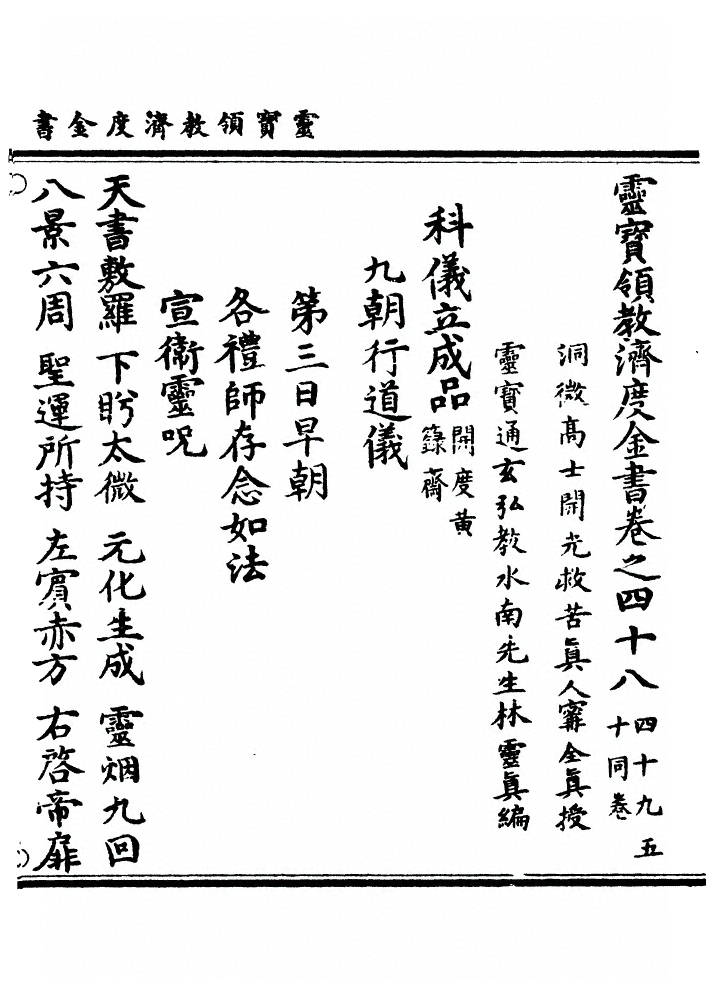 靈寶領教濟度金書
靈寶領教濟度金書卷之四十八 四十九五十同卷
洞微高士開光救苦眞人寗全眞授
靈寶通玄弘教水南先生林靈眞編
科儀立成品 開度黃籙齋
九朝行道儀
第三日早朝
各禮師存念如法
宣衞靈呪
天書敷羅 下眄太微 元化生成 靈烟九回
八景六周 聖運所持 左賔赤方 右啓帝扉